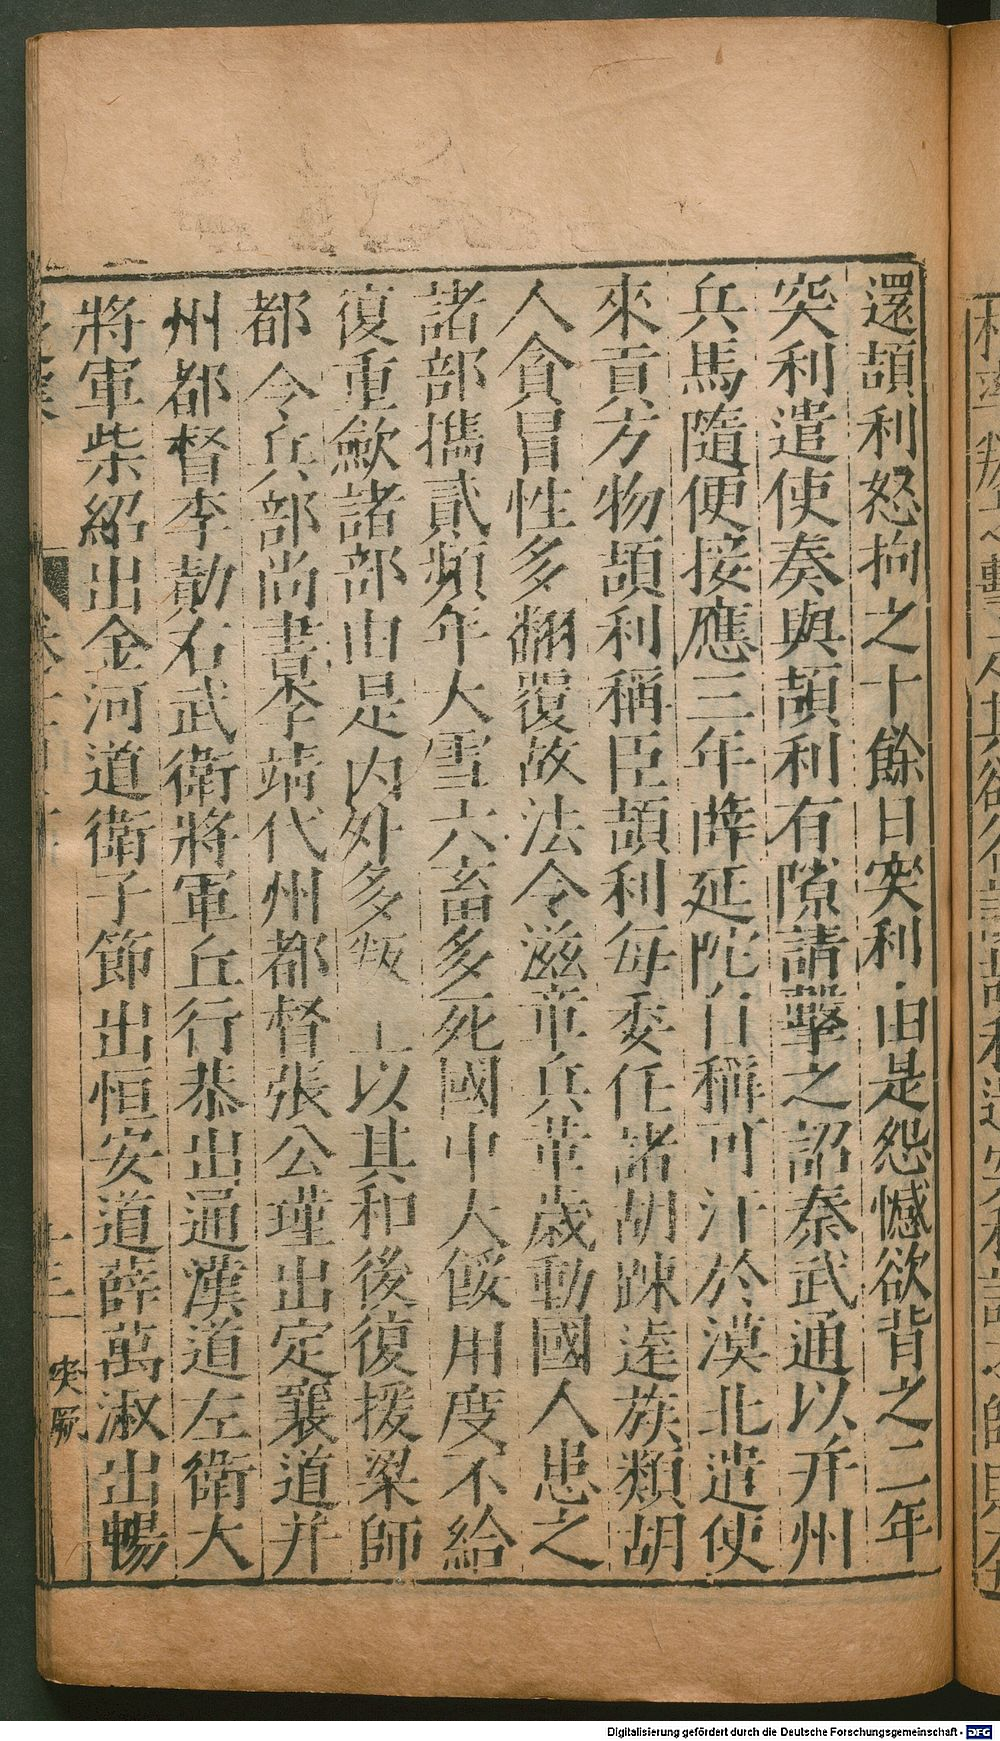 還頡利怒拘之十餘日突利由是怨憾欲背之二年
突利遣使奏與頡利有隙請擊之詔秦武通以并州
兵馬隨便接應三年薛延陀自稱可汗於漠北遣使
來貢方物頡利稱臣頡利每委任諸胡踈遠族類胡
人貪冒性多翻覆故法令滋章兵革歳動國人患之
諸部攜貳頻年大雪六畜多死國中人餒用度不給
復重歛諸部由是内外多叛上以其和後復援梁師
都令兵部尚書李靖代州都督張公瑾出定襄道并
州都督李勣右武衛將軍丘行恭出通漢道左衛大
將軍柴紹出金河道衛子節出恒安道薛萬淑出暢
突厥
Digitalisierung gefördert durch die Deutsche Forschungsgemeinschaft - DFG